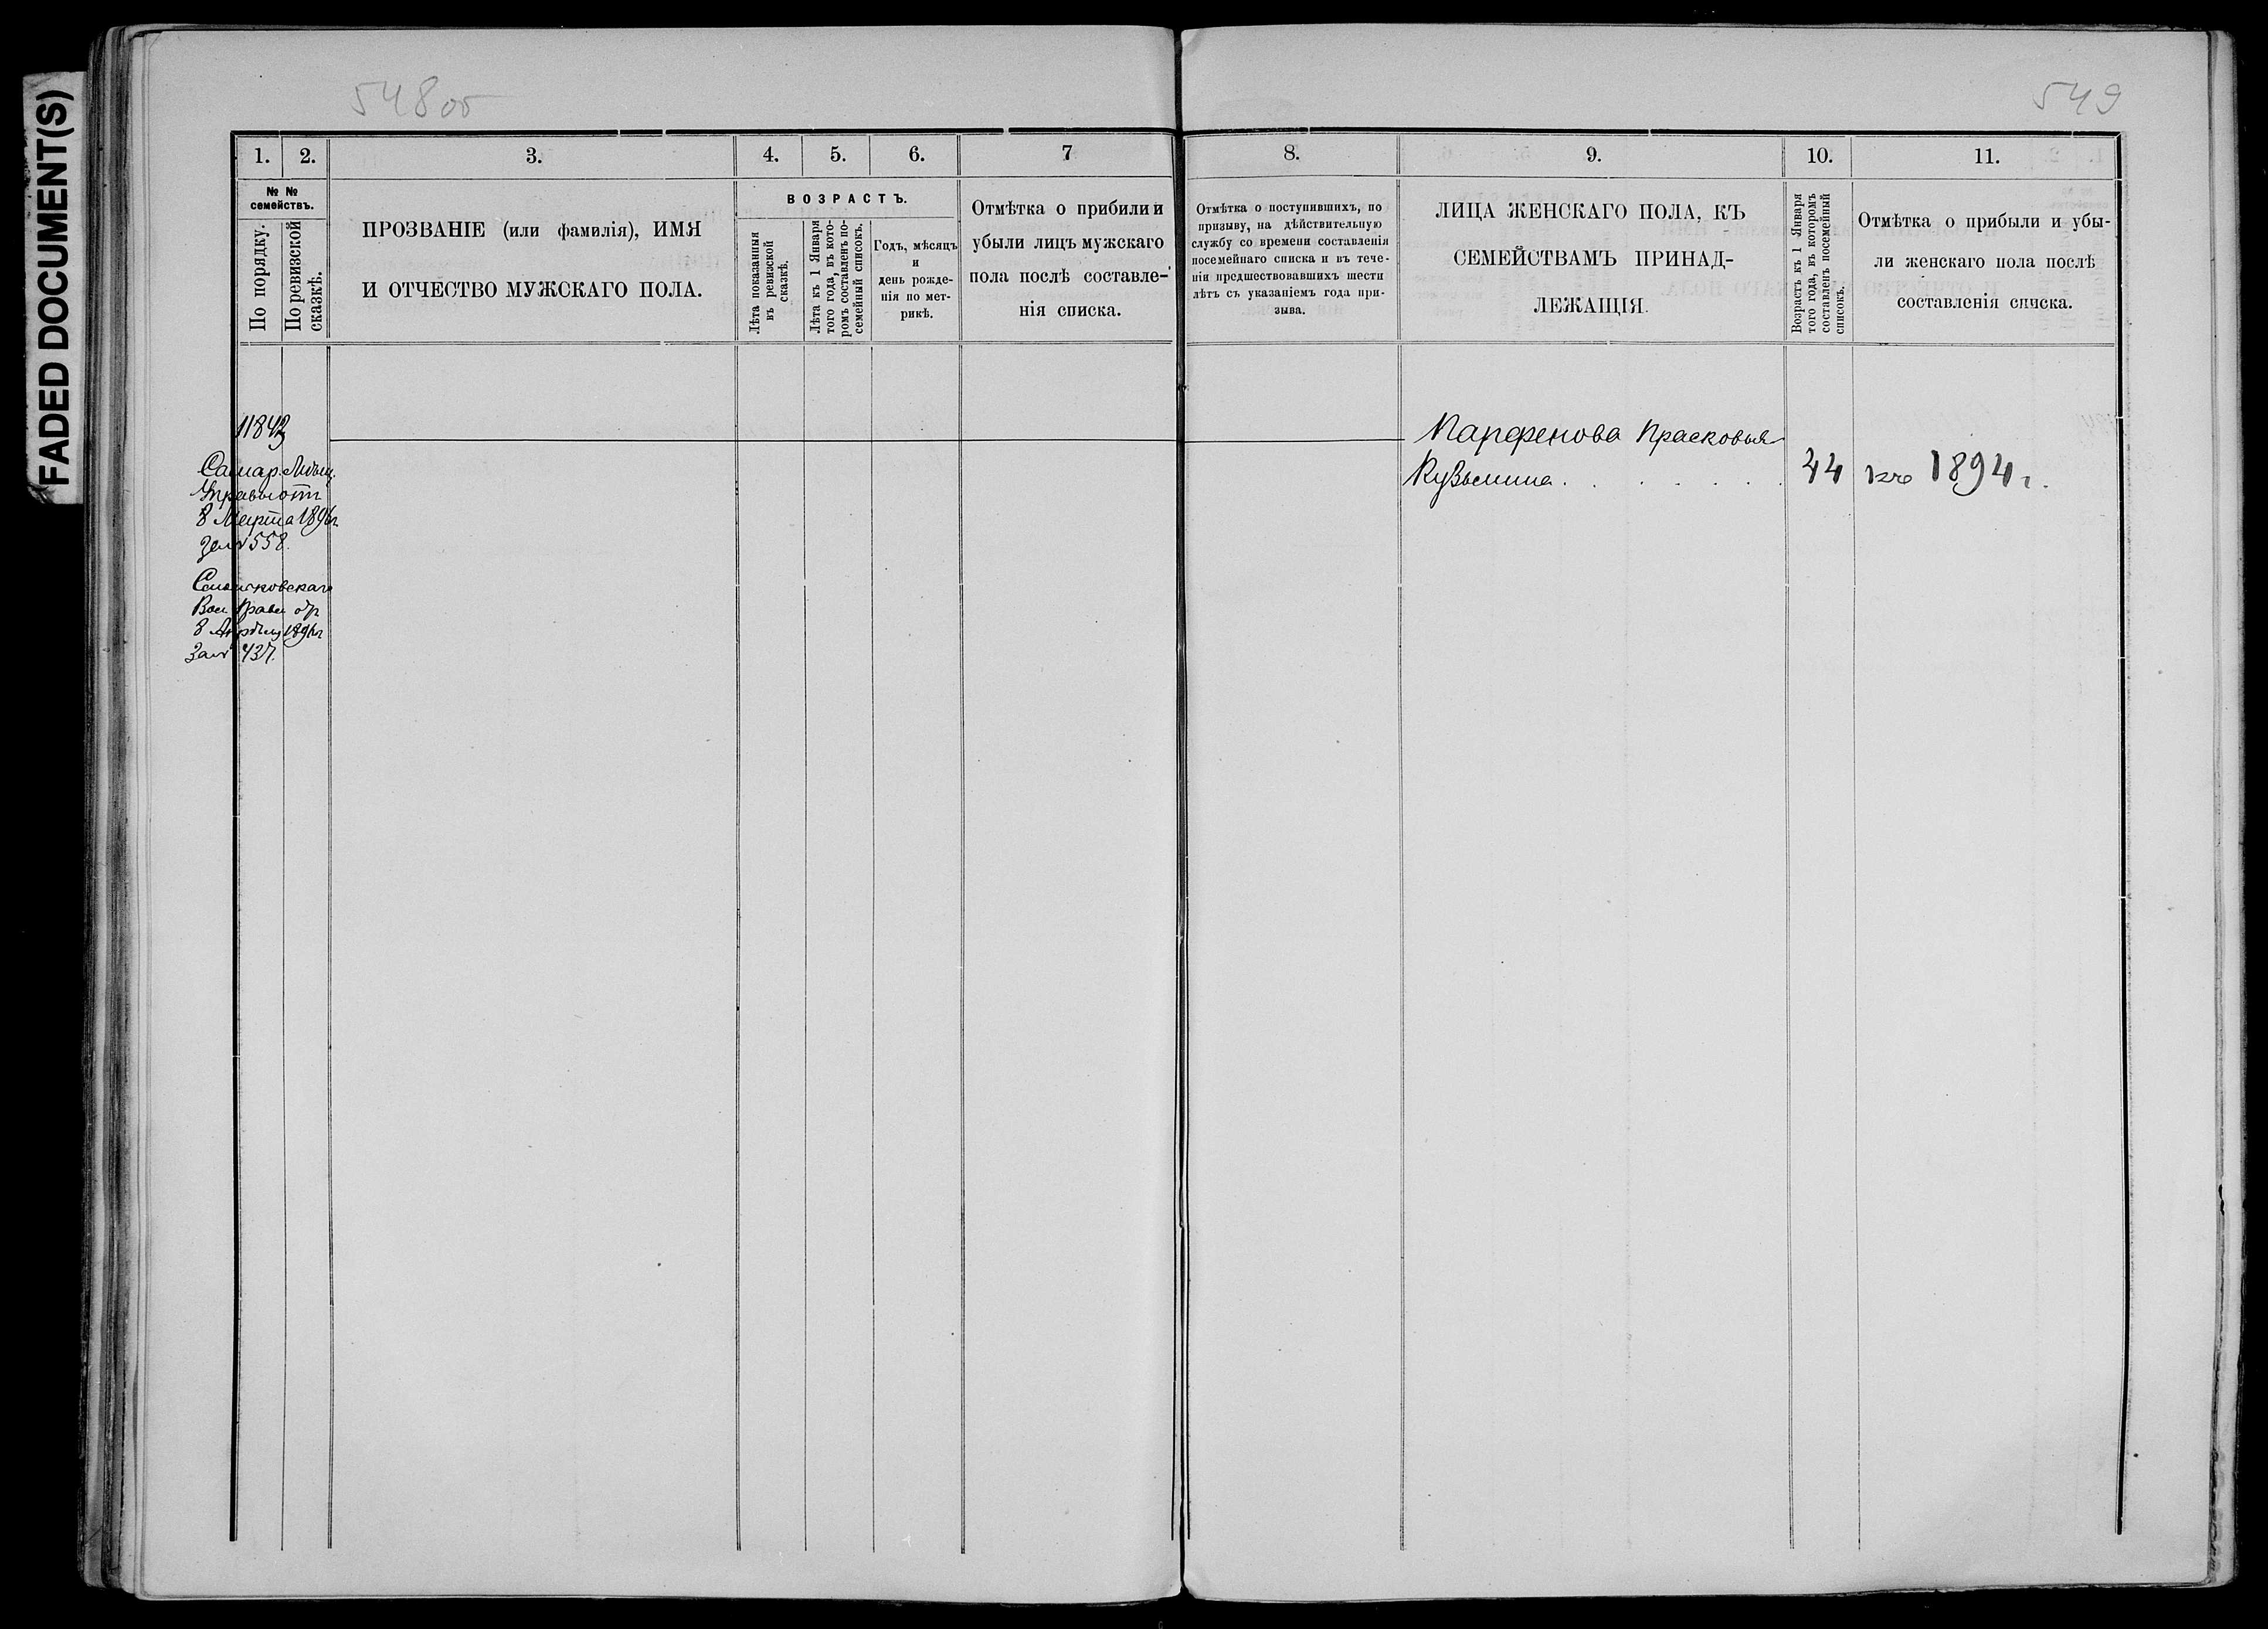 FADED DOCUMENT(S)
548 об
549
1.
2.
3.
4.
5.
6.
7
8.
9.
10.
11.
№ №
семействъ.
По порядку.
По ревизской
сказкѣ.
ПРОЗВАНІЕ (или фамилія), ИМЯ
И ОТЧЕСТВО МУЖСКАГО ПОЛА.
ВОЗРАСТЪ.
Лѣта показанныя
въ ревизской
сказкѣ.
Лѣта къ 1 Января
того года, въ кото-
ромъ составленъ по-
семейный списокъ.
Годъ, мѣсяцъ
и
день рожде-
нія по мет-
рикѣ.
Отмѣтка о прибыли и
убыли лицъ мужскаго
пола послѣ составле-
нія списка.
Отмѣтка о поступившихъ, по
призыву, на дѣйствительную
службу со времени составленія
посемейнаго списка и въ тече-
ніи предшествовавшихъ шести
лѣтъ съ указаніемъ года при-
зыва.
ЛИЦА ЖЕНСКАГО ПОЛА, КЪ
СЕМЕЙСТВАМЪ ПРИНАД-
ЛЕЖАЩІЯ.
Возрастъ къ 1 Января
того года, въ которомъ
составленъ посемейный
списокъ.
Отмѣтка о прибыли и убы-
ли женскаго пола послѣ
составленія списка.
11843
Парфенова Прасковья
Кузьмина . . . . . . . 44 1894 г.
Самар. Мѣщ.
Управы отъ
8 Марта
за № 558.
Вол. Правл. отъ
8 Апрѣля
за № 437.